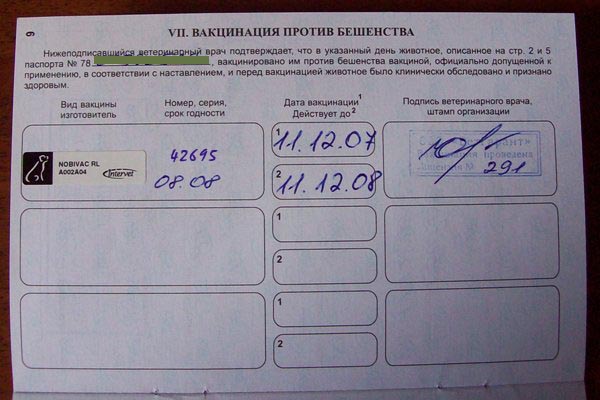 9
VII. ВАКЦИНАЦИЯ ПРОТИВ БЕШЕНСТВА
Нижеподписавшийся ветеринарный врач подтверждает, что в указанный день животное, описанное на стр. 2 и 5
паспорта № 78 , вакцинировано им против бешенства вакциной, официально допущенной к
применению, в соответствии с наставлением, и перед вакцинацией животное было клинически обследовано и признано
здоровым.
Вид вакцины
изготовитель
Номер, серия,
срок годности
Дата вакцинации1
Действует до2
Подпись ветеринарного врача,
штамп организации
NOBIVAC RL
A002A04
Intervet
42695
08.08
1
11.12.07
2
11.12.08
проведена
291
1
2
1
2